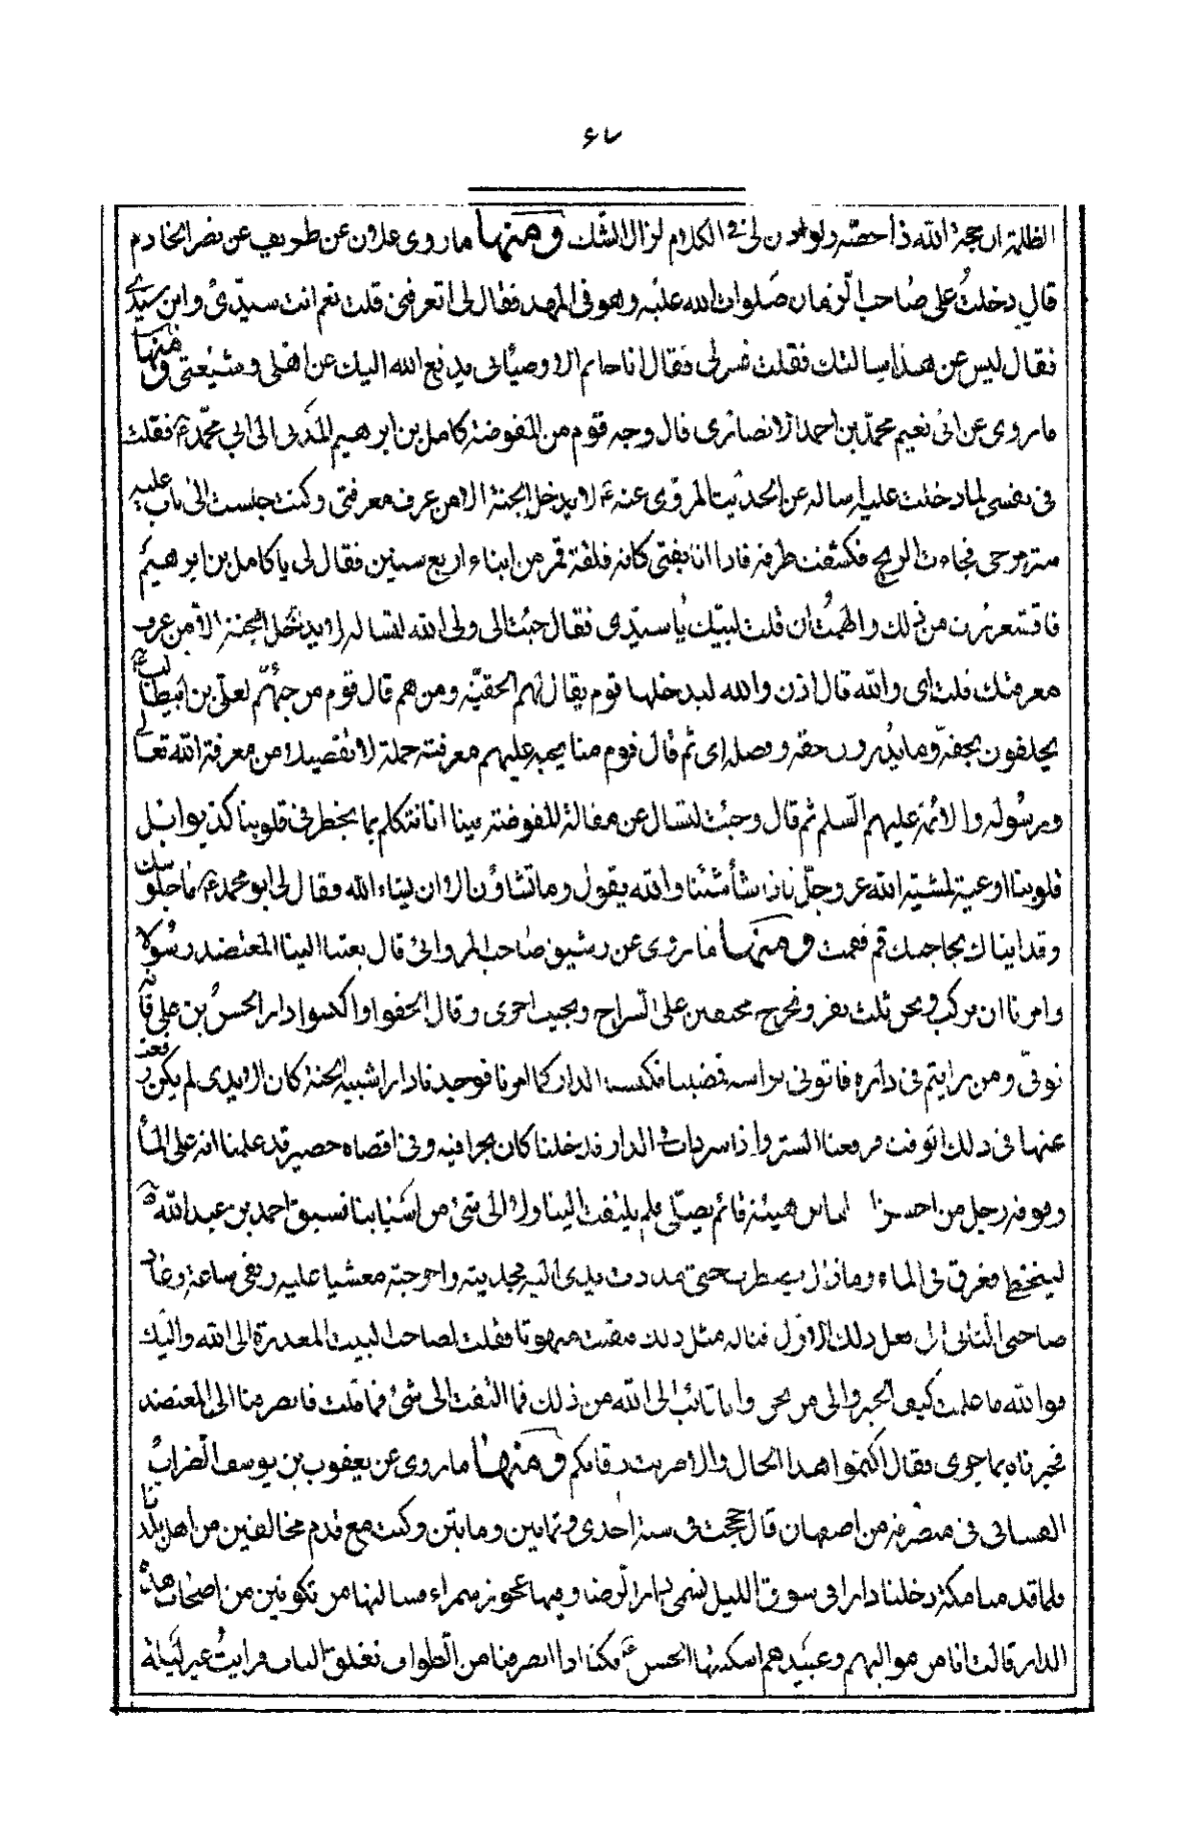 ٤٧
الظلمة ان حجة الله ذا حضة ولو اذن لى فى الكلام لزال الشك ومنها ما روى علان عن طريف عن نصر الخادم
قال دخلت على صاحب الزمان صلوات الله عليه وهو فى المهد فقال لى اتعرفنى قلت نعم انت سيدى وابن سيدى
فقال ليس عن هذا سالتك فقلت فسر لى فقال انا خاتم الاوصيا بى يدفع الله اليك عن اهلى وشيعتى ومنها
ما روى عن ابى نعيم محمد بن احمد الانصارى قال وجه قوم من المفوضة كامل بن ابرهيم المدنى الى ابى محمد ع فقلت
فى نفسى لما دخلت عليه اساله عن الحديث المروى عنه ع لا يدخل الجنة الا من عرف معرفتى وكنت جلست الى باب عليه
ستر مرخى فجاءت الريح فكشفت طرفه فاذا انا بفتى كانه فلقة قمر من ابناء اربع سنين فقال لى يا كامل بن ابرهيم
فاقشعررت من ذلك والهمت أن قلت لبيك يا سيدى فقال جئت الى ولى الله لتساله لا يدخل الجنة الا من عرف
معرفتك قلت اى والله قال اذن والله ليدخلها قوم يقال لهم الحقية ومن هم قال قوم من حبهم لعلى بن ابيطالب ع
يحلفون بحقه وما يدرون حقه وفضله اى ثم قال قوم منا يجب عليهم معرفته جملة لا تفصيلا من معرفة الله تعالى
ورسوله والائمة عليهم السلم ثم قال وجئت لتسال عن مقالة المفوضة مينا انا نتكلم بما يخطر فى قلوبنا كذبوا بل
قلوبنا اوعية لمشية الله عز وجل فاذا شاء شئنا والله يقول وما تشاؤن الا ان يشاء الله وقال لى ابو محمد ع ما جلوسك
وقد انباك بحاجتك قم فقمت ومنها ما روى عن رشيق صاحب المروانى قال بعثنا الينا المعتضد رسولا
وامرنا ان نركب ونحن ثلث نفر ونخرج مخففين على السراج ونجنب اخرى وقال الحقوا واكبسوا دار الحسن بن على فانه
توفى ومن رايتم فى داره فاتونى براسه فكبسنا الدار كما امرنا فوجدنا دارا شبيه الجنة كان الايدى لم يكن رفعت
عنها فى ذلك الوقت فرفعنا الستر واذا سرداب فى الدار فدخلنا كان بحرا فيه وفى اقصاه حصير قد علمنا انه على الماء
وفوقه رجل من احسن الناس هيئة قائم يصلى فلم يلتفت الينا ولا الى شئ من اسبابنا فسبق احمد بن عبد الله
ليتخطا فغرق فى الماء وما زال يضطرب حتى مددت يدى اليه فجذبته واخرجته مغشيا عليه وبقى ساعة وعاد
صاحبى الثانى الى فعل ذلك الاول فناله مثل ذلك فبقيت مبهوتا فقلت لصاحب البيت المعذرة الى الله واليك
فوالله ما علمت كيف الخبر والى من نجى وانا تائب الى الله من ذلك فما التفت الى شئ فما قلت فانصرفنا الى المعتضد
فخبرناه بما جرى فقال اكتموا هذا الحال والا ضربت رقابكم ومنها ما روى عن يعقوب بن يوسف الضراب
الغسانى فى منصرفه من اصفهان قال حججت فى سنة احدى وثمانين ومايتن وكنت مع قوم مخالفين من اهل بلدنا
فلما قدمنا مكة دخلنا دارا فى سوق الليل تسمى دار الرضا وفيها عجوز سمراء فسالتها من تكونين من اصحاب هذه
الدار قالت انا من مواليهم وعبيدهم اسكنها الحسن ع فكنا اذا انصرفنا من الطواف نغلق الباب فرايت غير ليلة